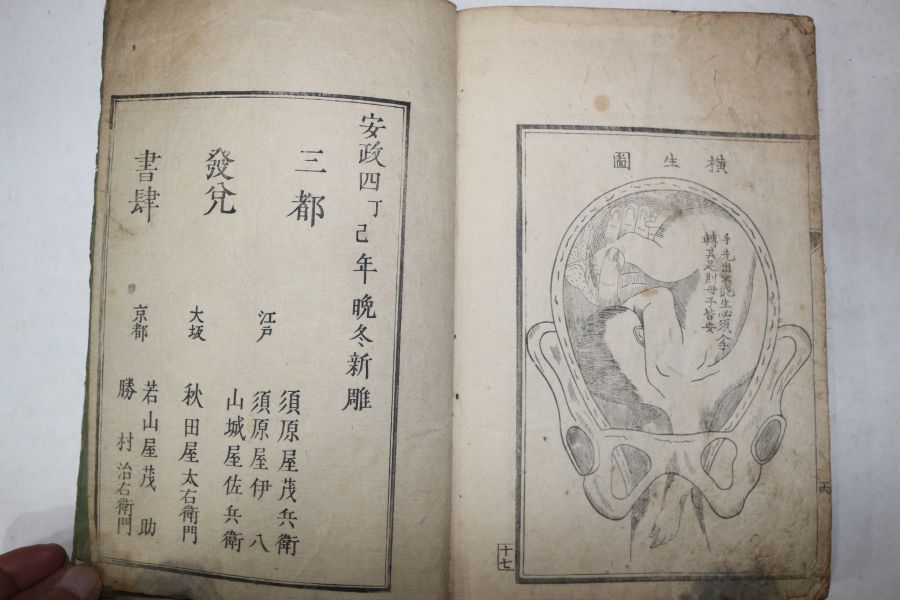 横生圖
手先出不能生必須入手
轉其足則母子皆安
十七
安政四丁己年晩冬新雕
三都
發兌
書肆
江戸
須原屋茂兵衛
須原屋伊八
山城屋佐兵衛
大坂
秋田屋太右衛門
京都
若山屋茂助
勝村治右衛門